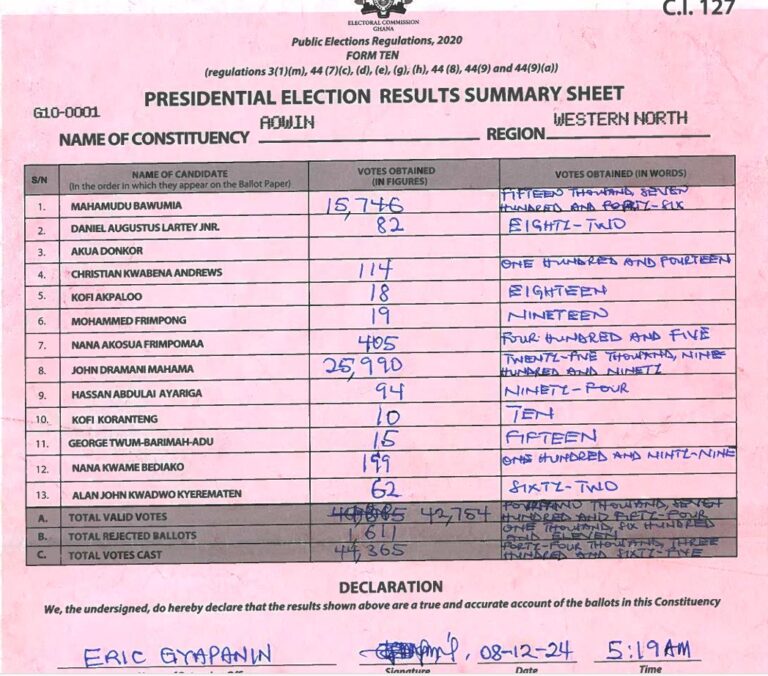 C.I. 127
ELECTORAL COMMISSION
GHANA
Public Elections Regulations, 2020
FORM TEN
(regulations 3(1)(m), 44 (7)(c), (d), (e), (g), (h), 44 (8), 44(9) and 44(9)(a))
PRESIDENTIAL ELECTION RESULTS SUMMARY SHEET
G10-0001
NAME OF CONSTITUENCY AOWIN REGION WESTERN NORTH
S/N NAME OF CANDIDATE (In the order in which they appear on the Ballot Paper) VOTES OBTAINED (IN FIGURES) VOTES OBTAINED (IN WORDS)
1. MAHAMUDU BAWUMIA 15,746 FIFTEEN THOUSAND, SEVEN HUNDRED AND FORTY-SIX
2. DANIEL AUGUSTUS LARTEY JNR. 82 EIGHTY-TWO
3. AKUA DONKOR
4. CHRISTIAN KWABENA ANDREWS 114 ONE HUNDRED AND FOURTEEN
5. KOFI AKPALOO 18 EIGHTEEN
6. MOHAMMED FRIMPONG 19 NINETEEN
7. NANA AKOSUA FRIMPOMAA 405 FOUR HUNDRED AND FIVE
8. JOHN DRAMANI MAHAMA 25,990 TWENTY-FIVE THOUSAND, NINE HUNDRED AND NINETY
9. HASSAN ABDULAI AYARIGA 94 NINETY-FOUR
10. KOFI KORANTENG 10 TEN
11. GEORGE TWUM-BARIMAH-ADU 15 FIFTEEN
12. NANA KWAME BEDIAKO 199 ONE HUNDRED AND NINTY-NINE
13. ALAN JOHN KWADWO KYEREMATEN 62 SIXTY-TWO
A. TOTAL VALID VOTES 42,754 THOUSAND, SEVEN HUNDRED AND FIFTY-FOUR
B. TOTAL REJECTED BALLOTS 1,611 ONE THOUSAND, SIX HUNDRED AND ELEVEN
C. TOTAL VOTES CAST 44,365 FORTY-FOUR THOUSAND, THREE HUNDRED AND SIXTY-FIVE
DECLARATION
We, the undersigned, do hereby declare that the results shown above are a true and accurate account of the ballots in this Constituency
ERIC GYAPANIN 08-12-24 5:19AM
Signature Date Time